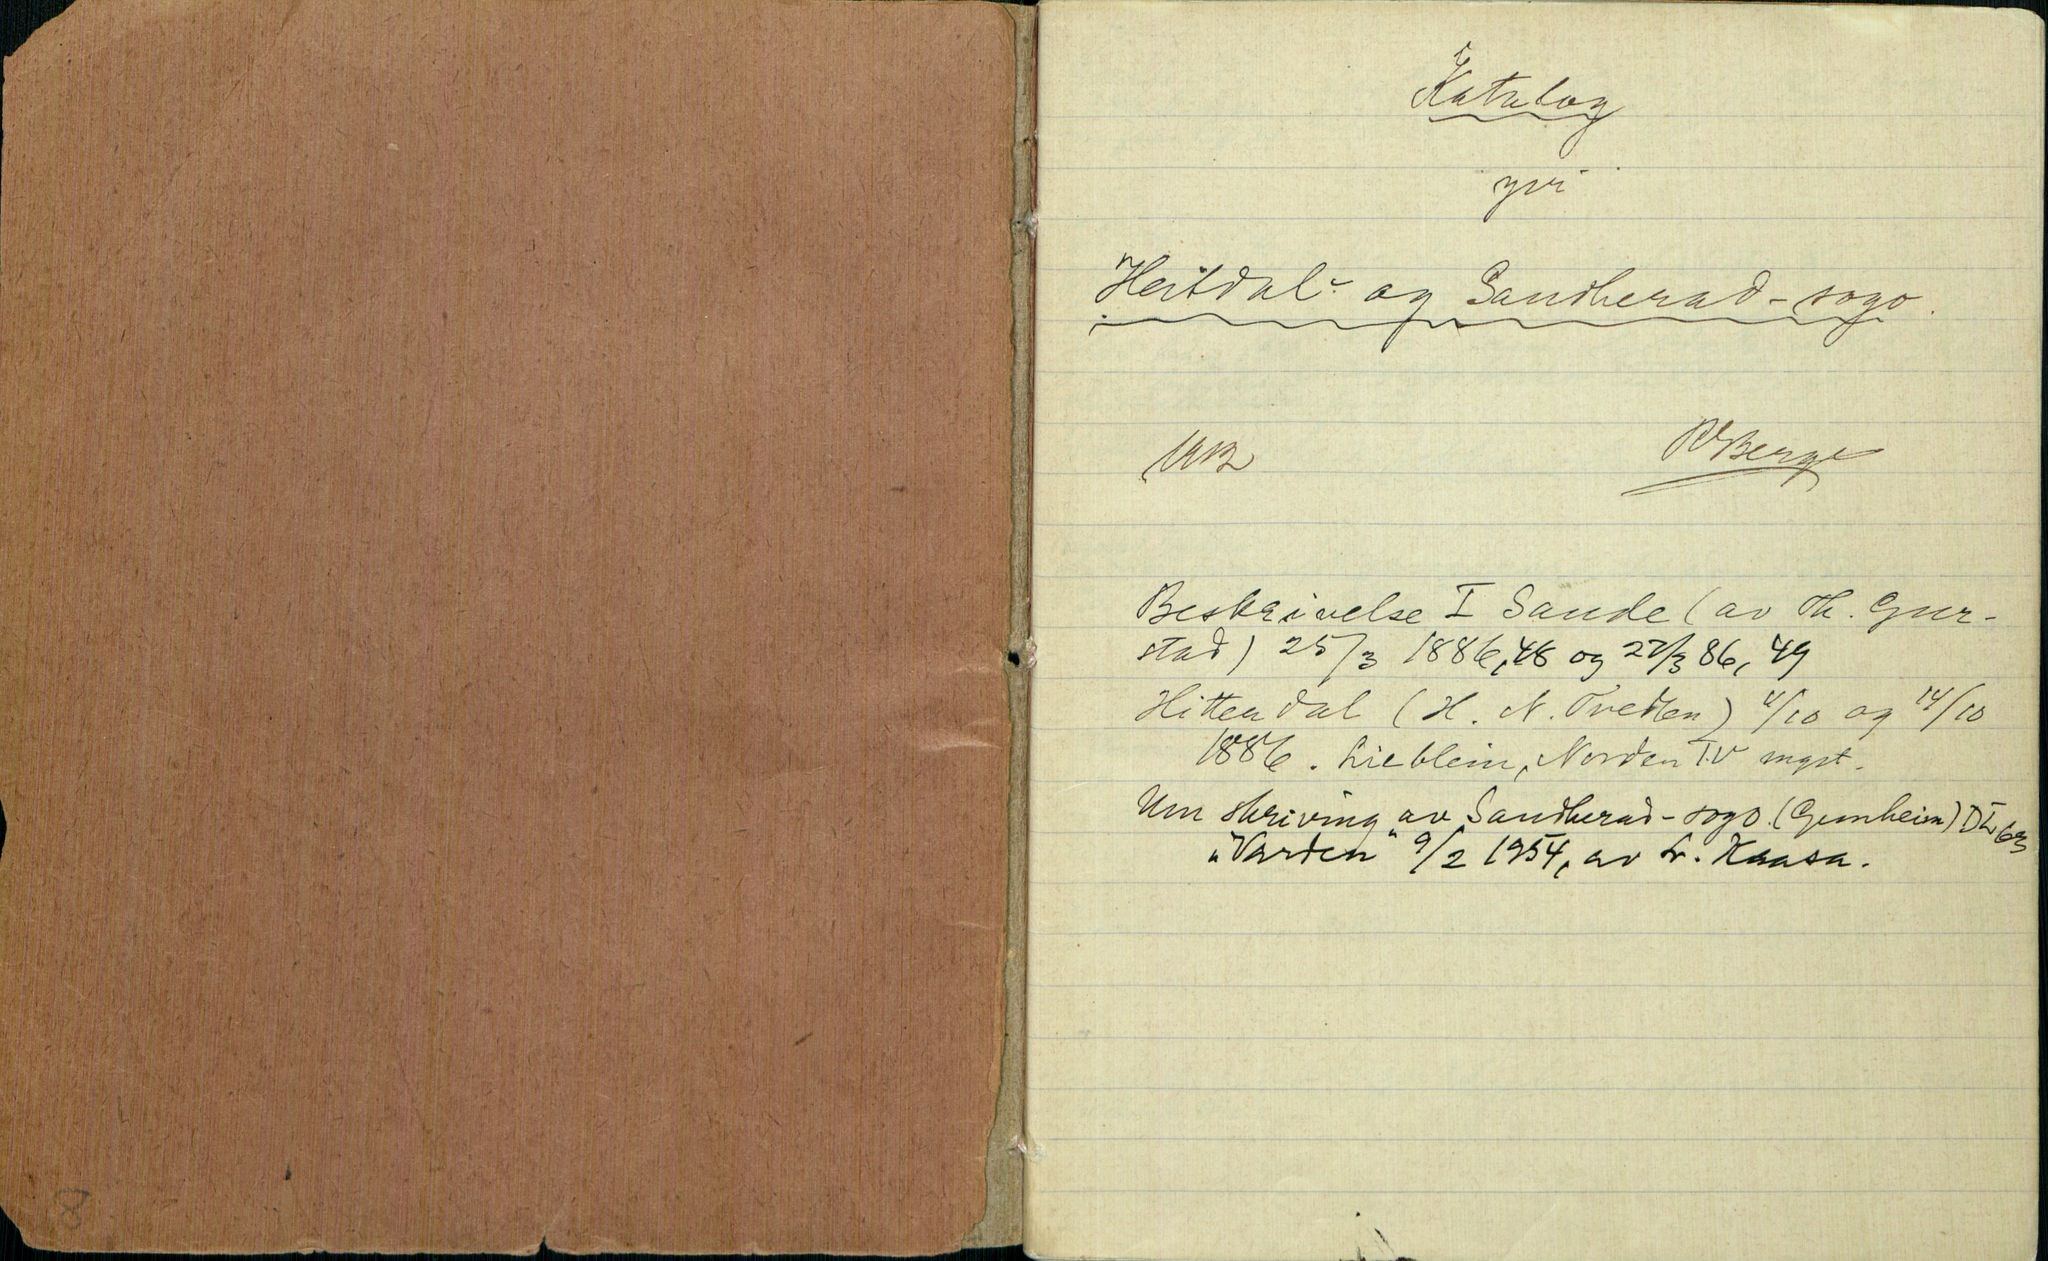 Katalog
yvi
Heitdal- og Sandherad-sogo.
RBerge
Beskrivelse I Sande (av Th. Gur-
stad) 25/3 1886, 48 og 27/3 86, 49
Hitterdal (H. N. Tvedten) 4/10 og 14/10
1886. Lieblein, Norden IV mgst.
Um skriving av Sandherad-sogo (Gunheim) DT 63
"Varden" 9/2 1954, av L. Kaasa.
8